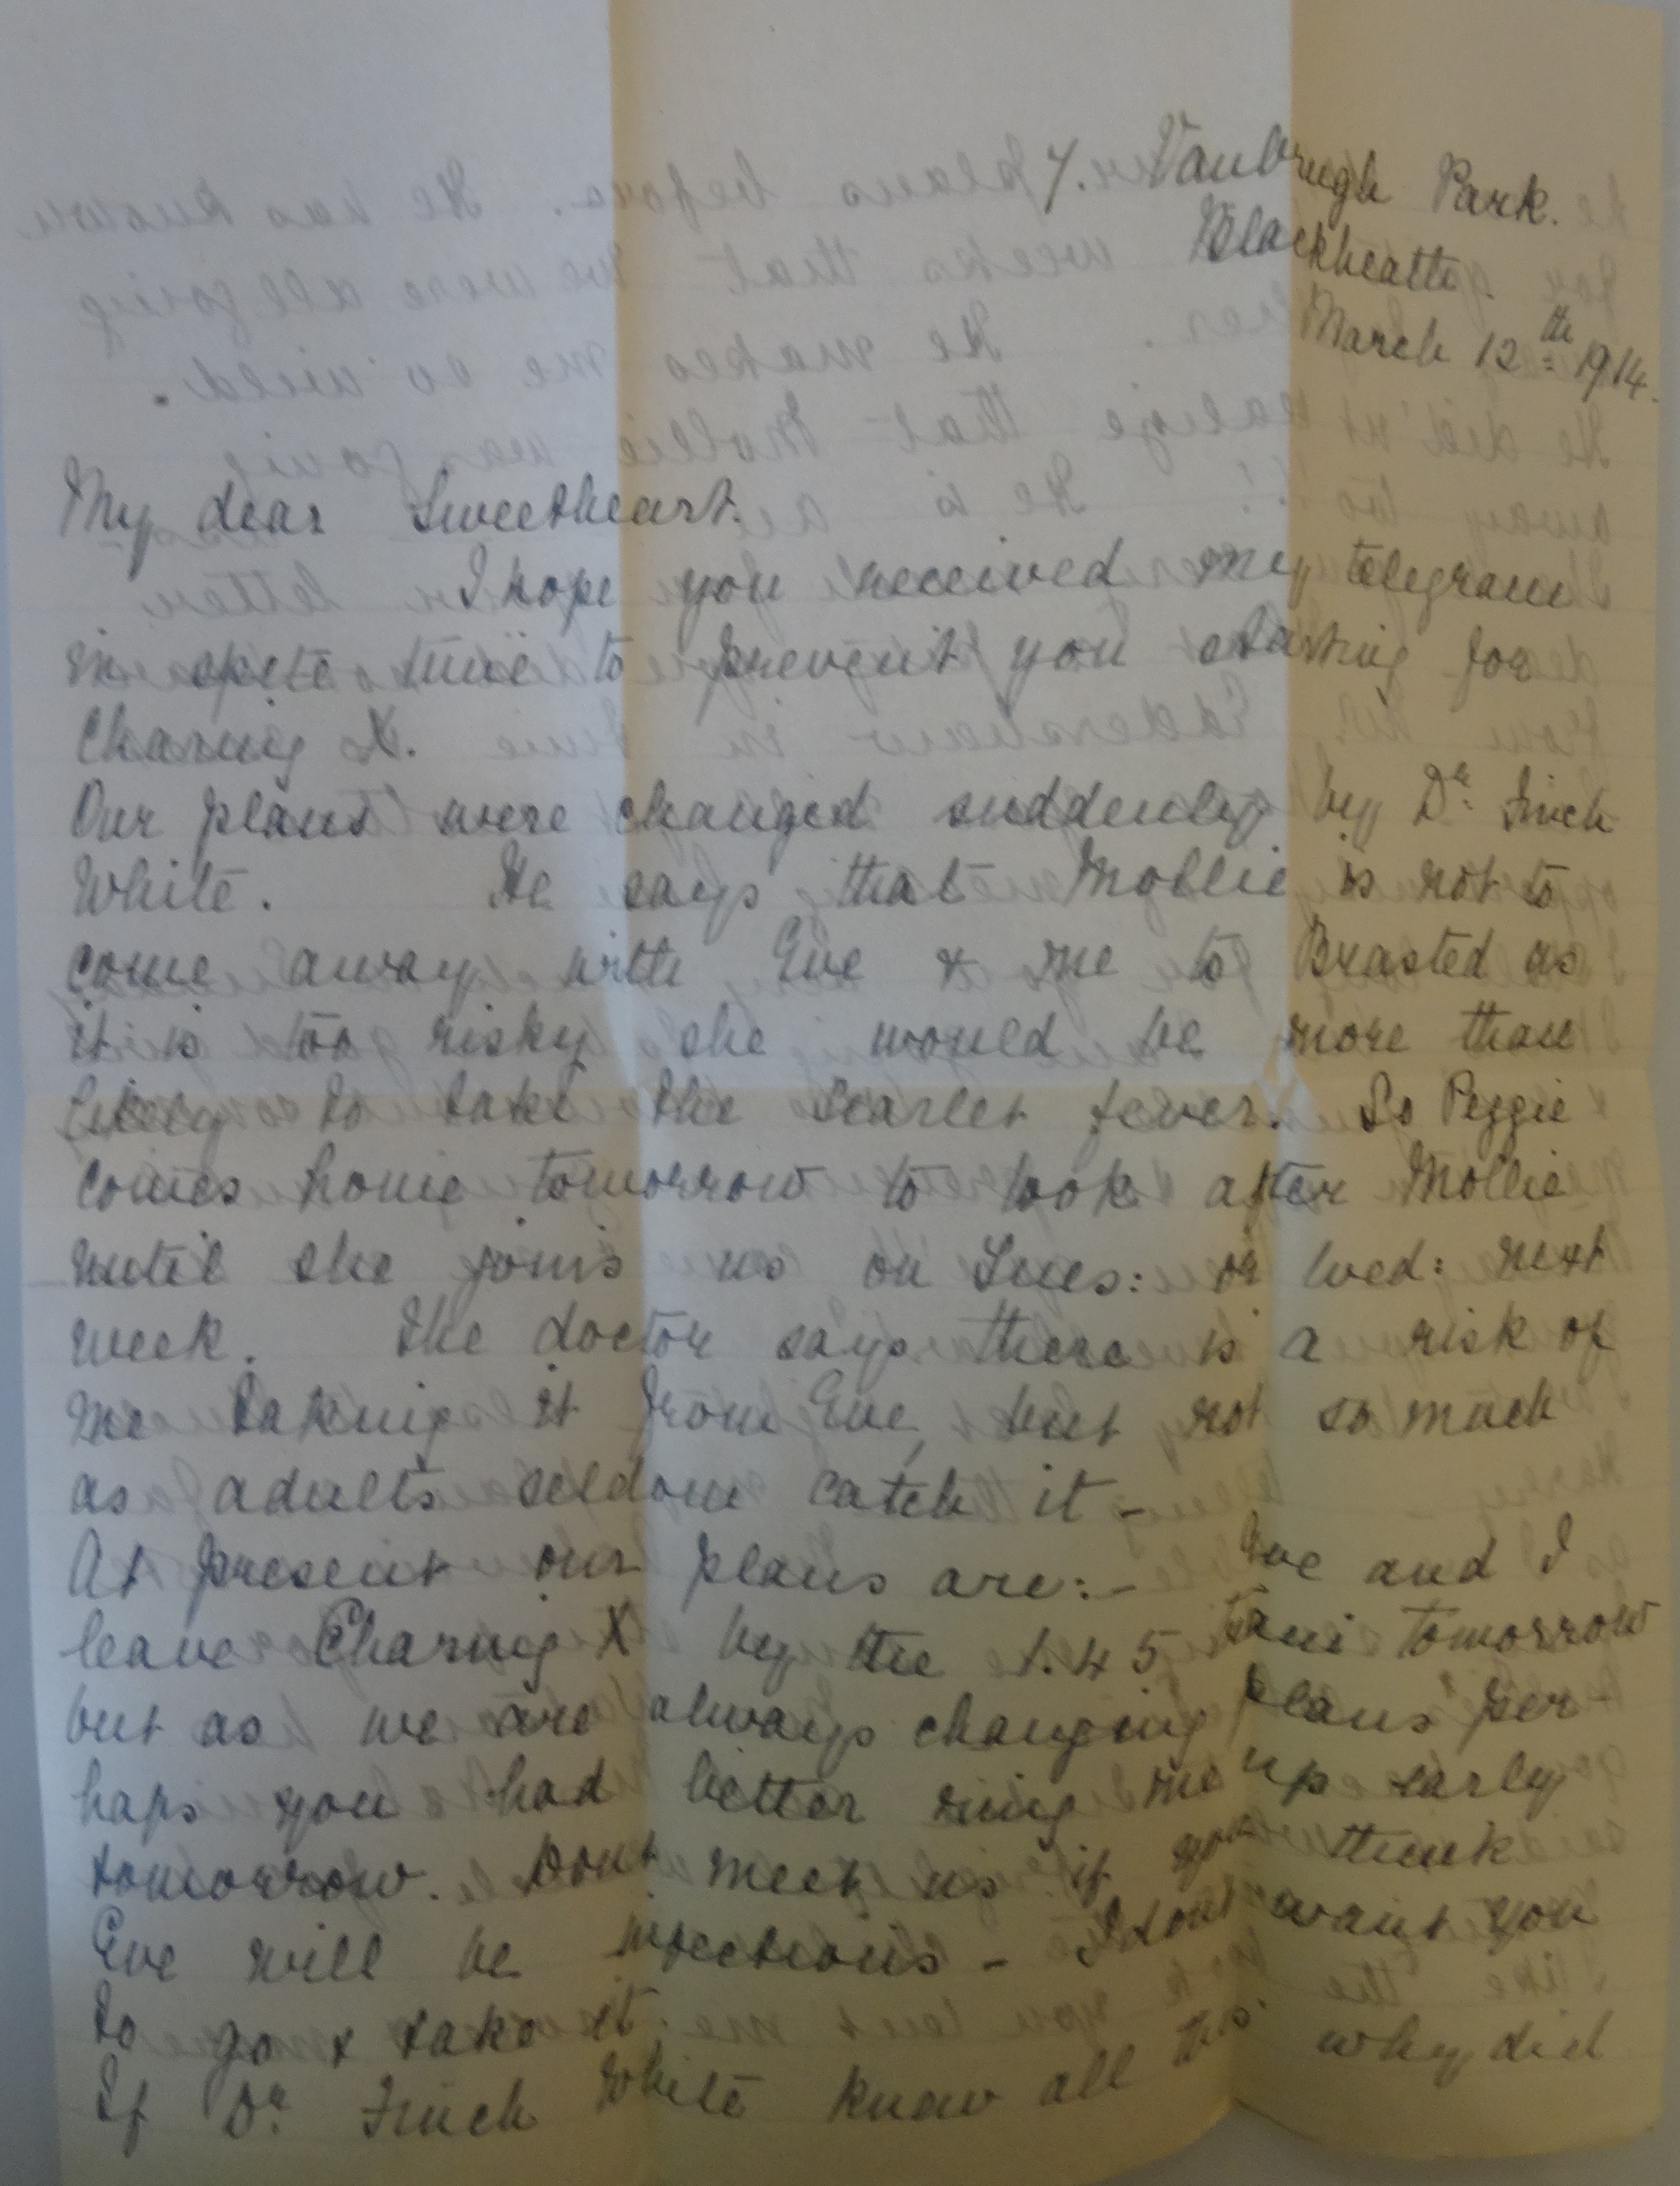 7. Vanbrugh Park.
Blackheath.
March 12th 1914.
My dear Sweetheart.
I hope you received my telegram
in time to prevent you starting for
Charing X.
Our plans were changed suddenly by Dr. Finch
White. He says that Mollie is not to
come away with Eve & me to Brasted as
it is too risky she would be more than
likely to take the Scarlet fever. So Peggie
comes home tomorrow to look after Mollie
until she joins us on Tues: or Wed: next
week. The doctor says there is a risk of
me taking it from Eve, but not so much
as adults seldom catch it -
At present our plans are:- Eve and I
leave Charing X by the 1.45 tomorrow
but as we are always changing plans per-
haps you had better ring me up early
tomorrow. Dont meet us if you think
Eve will be infectious - I dont want you
to go & take it.
If Dr. Finch White knew all this why did